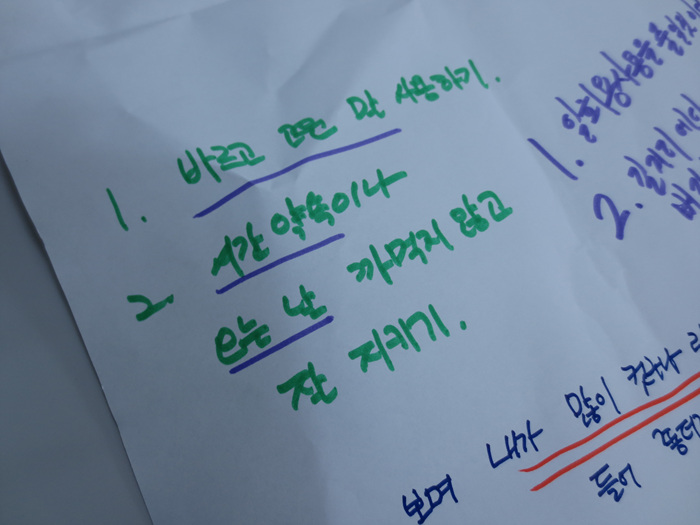 1. 바르고 고운 말 사용하기.
2. 시간 약속이나
오는 날 까먹지 않고
잘 지키기.
1. 일회용사용을
2. 길거리
보며 내가 많이 컸구나
들어